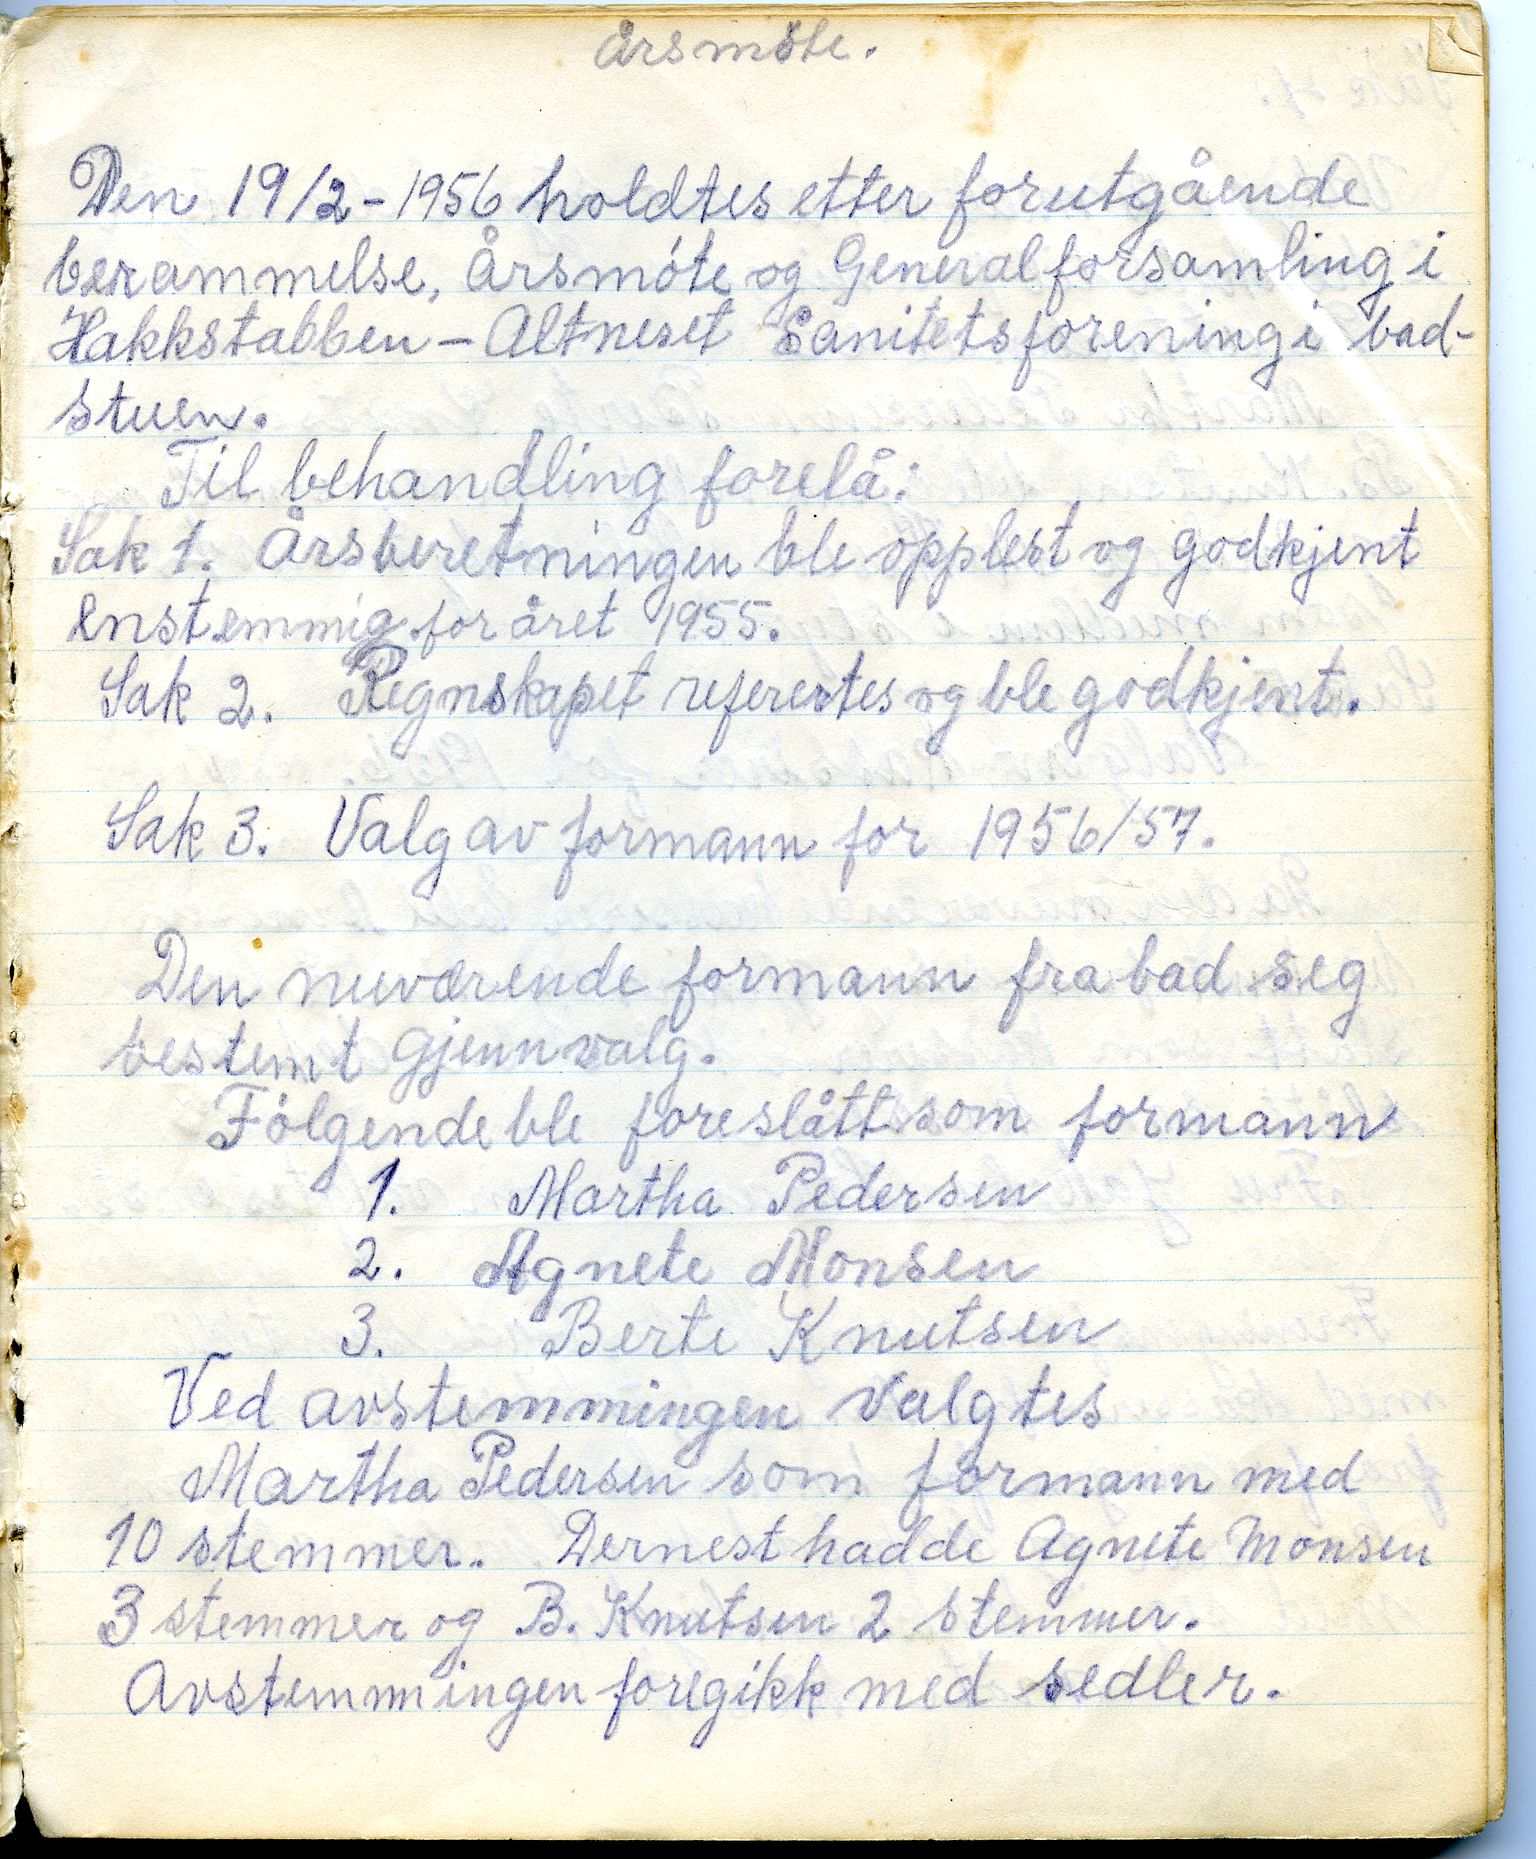 Årsmöte.
Den 19/2-1956 holdtes etter forutgående
berammelse, Årsmóte og Generalforsamling i
Hakkstabben-Altneset Sanitetsforening i bad-
stuen.
Til behandling forelå:
Sak 1. Årsberetningen ble opplest og godkjent
enstemmig for året 1955.
Sak 2. Regnskapet referertes og ble godkjent.
Sak 3. Valg av formann for 1956/57.
Den nuværende formann frabad seg
bestemt gjennvalg.
Fólgende ble foreslått som formann
1. Martha Pedersen
2. Agnete Monsen
3. Berte Knutsen
Ved avstemmingen valgtes
Martha Pedersen som formann med
10 stemmer. Dernest hadde Agnete Monsen
3 stemmer og B. Knutsen 2 stemmer.
Avstemmingen foregikk med sedler.